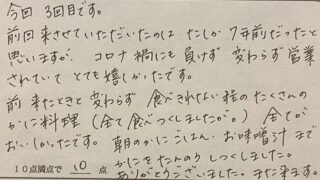 今回 3回目です。
前回来させていただいたのは たしか 7年前だったと
思いますが、コロナ禍にも負けず 変わらず営業
されていて とても嬉しかったです。
前 来たときと 変わらず 食べきれない程の たくさんの
かに料理(全て食べつくしましたが。) 全てが
おいしかったです。朝のかにごはん、お味噌汁まで
かにをたんのう しつくしました。
10点満点で 10 点 ありがとうございました。また来ます。